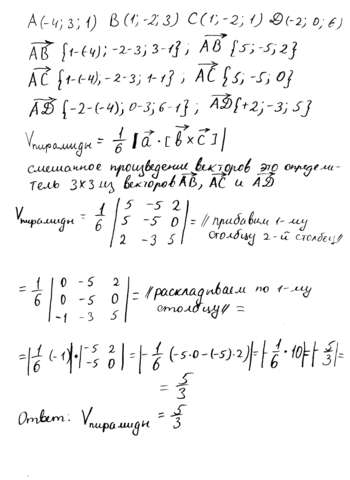 A(-4; 3; 1) B(1; -2; 3) C(1; -2; 1) D(-2; 0; 6)
AB {1-(-4); -2-3; 3-1}; AB {5; -5; 2}
AC {1-(-4); -2-3; 1-1}; AC {5; -5; 0}
AD {-2-(-4); 0-3; 6-1}; AD {+2; -3; 5}
Vпирамиды = 1/6 |a · [b × c]|
смешанное произведение векторов это определи-
тель 3×3 из векторов AB, AC и AD
Vпирамиды = 1/6 | 5 -5 2 | = // прибавим 1-му
| 5 -5 0 | столбцу 2-й столбец //
| 2 -3 5 |
= 1/6 | 0 -5 2 | = // раскладываем по 1-му
| 0 -5 0 | столбцу // =
| -1 -3 5 |
= |1/6 (-1)| · | -5 2 | = |-1/6 (-5·0-(-5)·2)| = |-1/6 · 10| = |-5/3| =
| -5 0 |
= 5/3
Ответ: Vпирамиды = 5/3